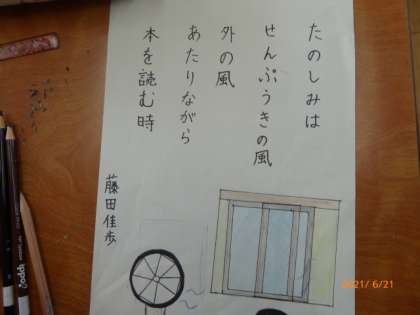 たのしみは
せんぷうきの風
外の風
あたりながら
本を読む時
藤田佳歩
2021/6/21